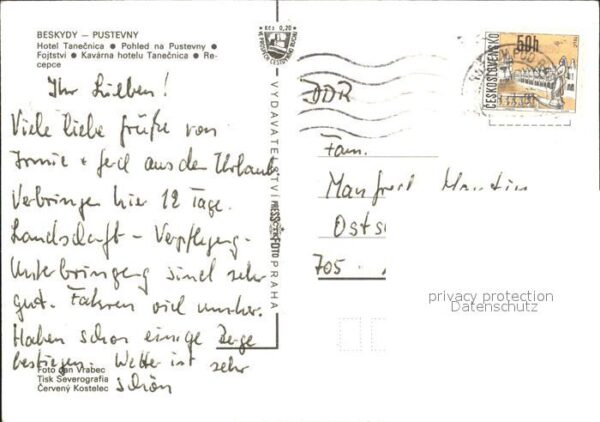 BESKYDY — PUSTEVNY
Hotel Tanečnica ● Pohled na Pustevny ●
Fojtství ● Kavárna hotelu Tanečnica ● Re-
cepce
Ihr Lieben!
Viele liebe Grüße von
+ Gerd aus dem Urlaub
Verbringen hier 12 Tage.
Landschaft – Verpflegung –
Unterbringung sind sehr
gut. Fahren viel umher.
Haben schon einige Berge
bestiegen. Wetter ist sehr
schön
Foto Jan Vrabec
Tisk Severografia
Červený Kostelec
Kčs 0,20
VYDAVATELSTVÍ PRESSFOTO PRAHA
ČESKOSLOVENSKO
50h
DDR
Fam.
Manfred
Osts
705
privacy protection
Datenschutz